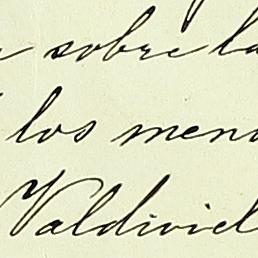 sobre la
los meno
Valdiviel